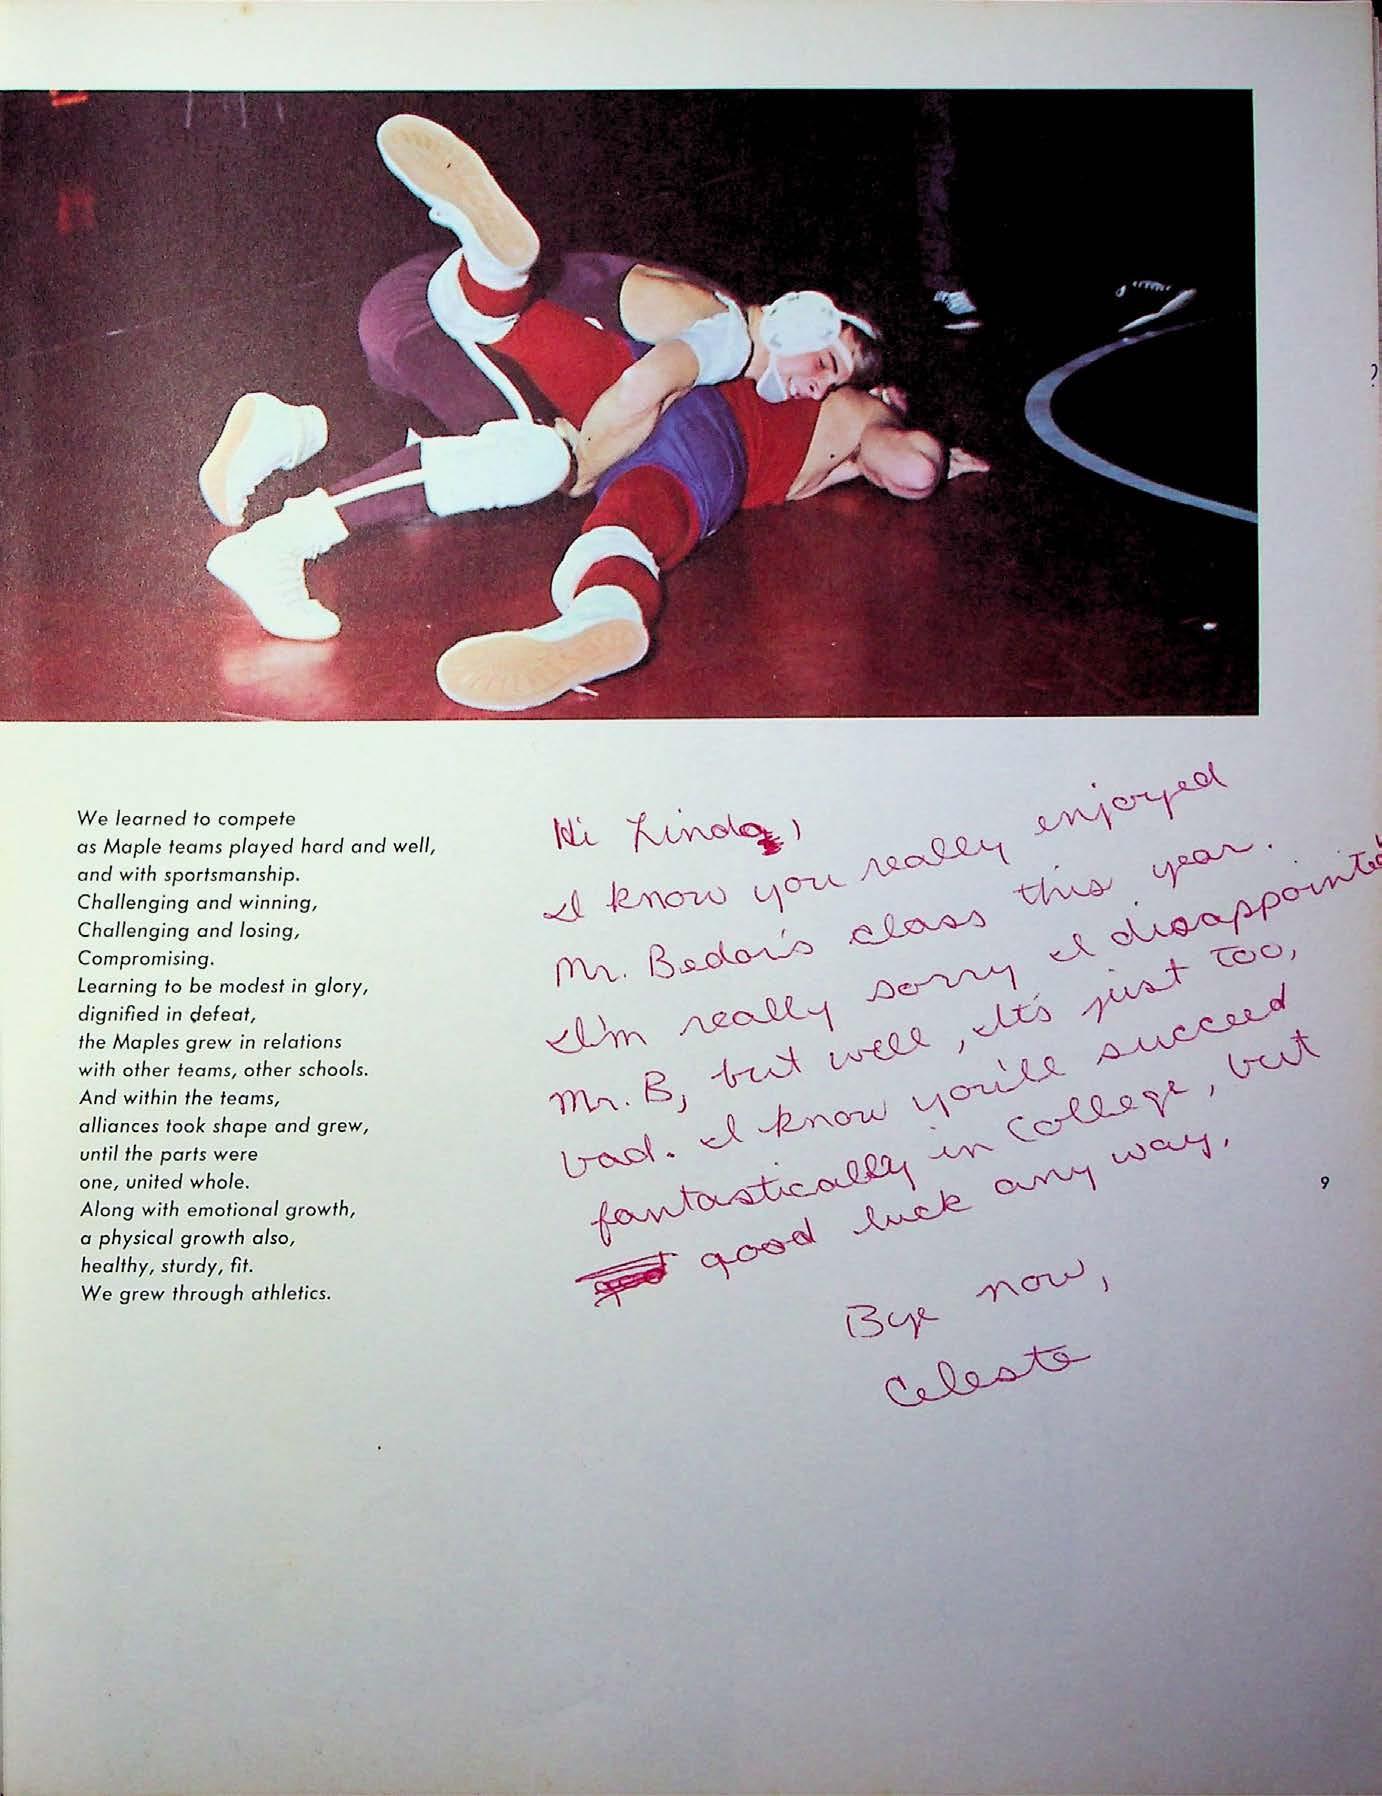 We learned to compete
as Maple teams played hard and well,
and with sportsmanship.
Challenging and winning,
Challenging and losing,
Compromising.
Learning to be modest in glory,
dignified in defeat,
the Maples grew in relations
with other teams, other schools.
And within the teams,
alliances took shape and grew,
until the parts were
one, united whole.
Along with emotional growth,
a physical growth also,
healthy, sturdy, fit.
We grew through athletics.
Hi Linda,
I know you really enjoyed
Mr. Bedar's class this year.
I'm really sorry I disappointed
Mr. B, but well, It's just too,
bad. I know you'll succeed
fantastically in College, but
good luck any way.
Bye now,
Celeste
9
?